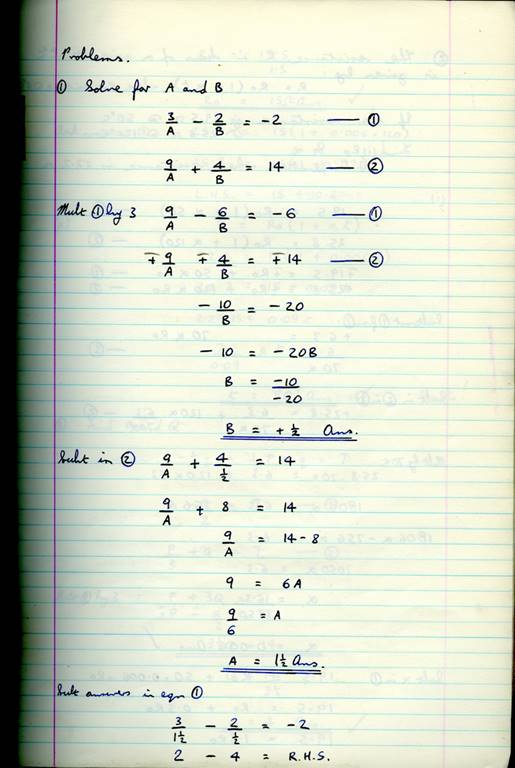 Problems.
① Solve for A and B
3/A - 2/B = -2 — ①
9/A + 4/B = 14 — ②
Mult ① by 3 9/A - 6/B = -6 — ①
∓9/A ∓4/B = ∓14 — ②
-10/B = -20
-10 = -20B
B = -10/-20
B = +½ Ans.
Subt in ② 9/A + 4/½ = 14
9/A + 8 = 14
9/A = 14-8
9 = 6A
9/6 = A
A = 1½ Ans.
Subt answers in eqn ①
3/1½ - 2/½ = -2
2 - 4 = R.H.S.